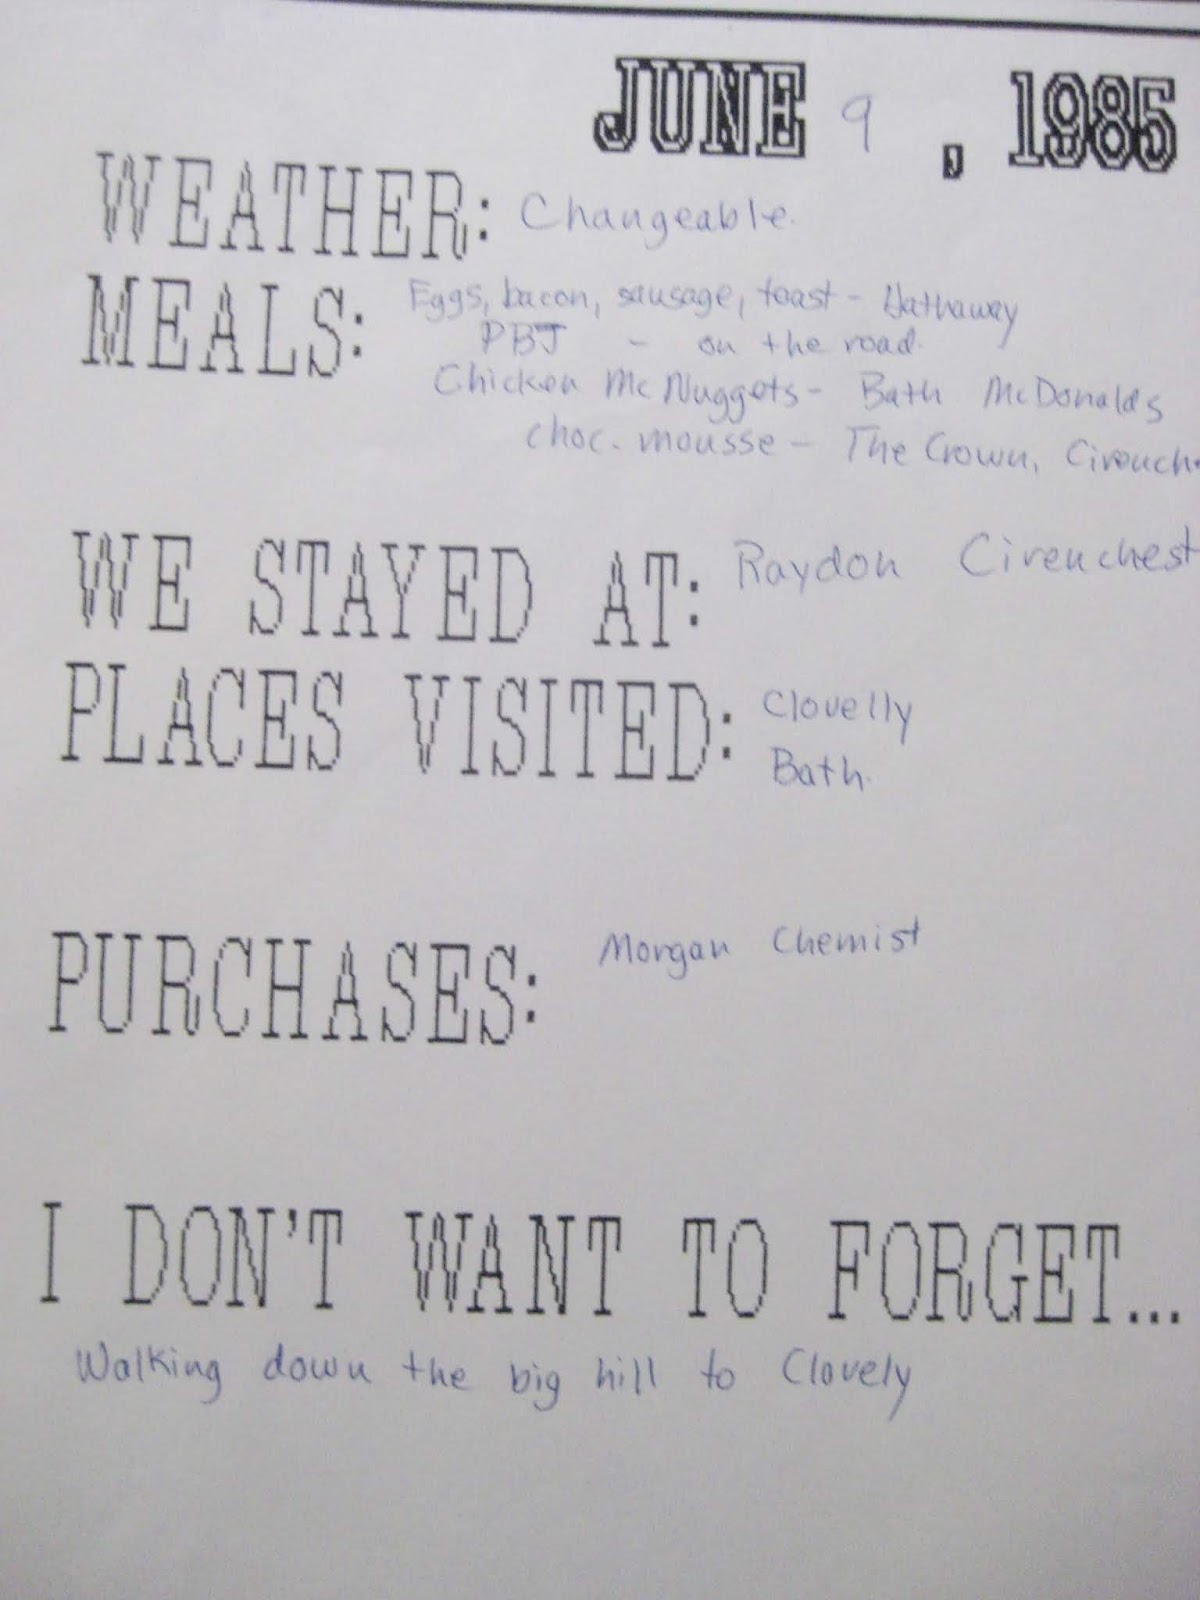 JUNE 9, 1985
WEATHER: Changeable.
MEALS: Eggs, bacon, sausage, toast - Hathaway
PBJ - on the road.
Chicken McNuggets - Bath McDonalds
choc. mousse - The Crown, Cirench
WE STAYED AT: Raydon Cirenchest
PLACES VISITED: Clovelly
Bath.
PURCHASES: Morgan Chemist
I DON'T WANT TO FORGET...
Walking down the big hill to Clovely